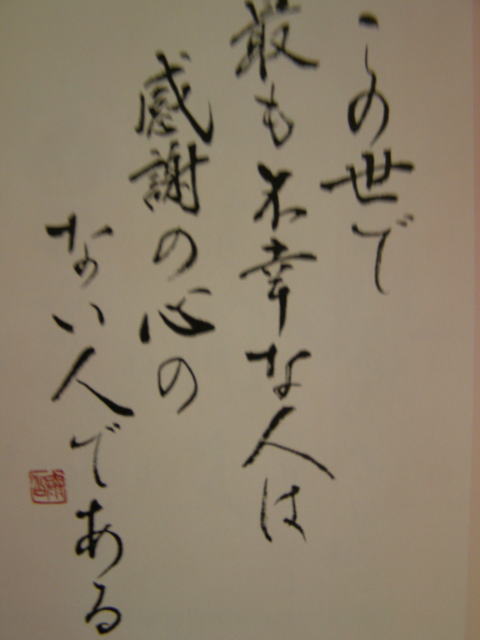 この世で
最も不幸な人は
感謝の心の
ない人である